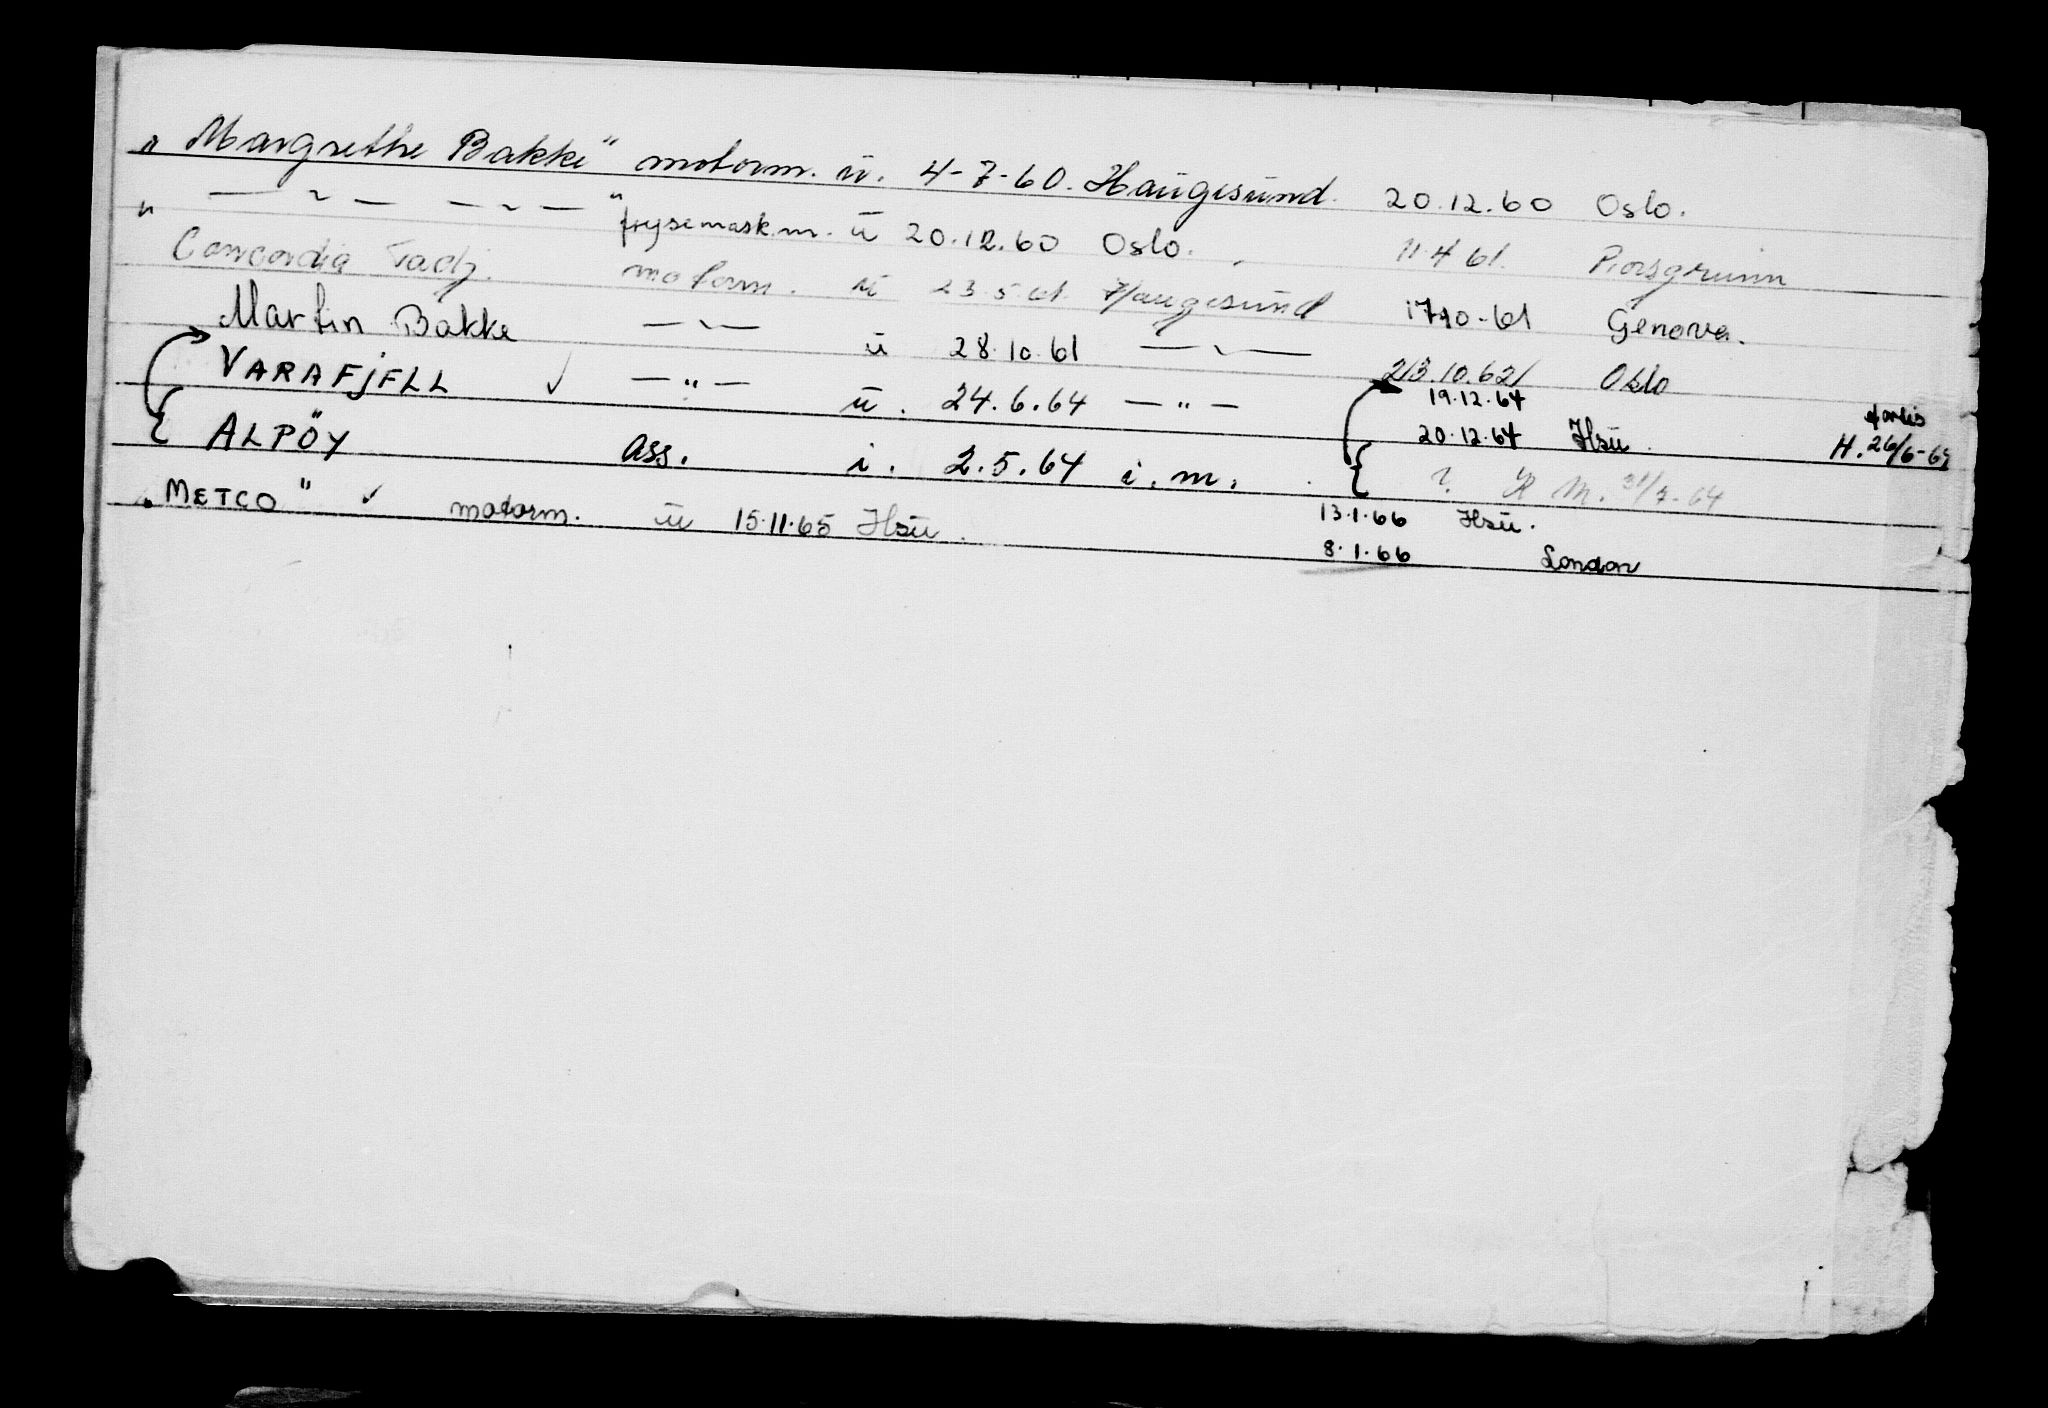 „ Margrethe Bakke" motorm. ü. 4-7-60. Haugesund. 20.12.60 Oslo.
„ — ~ — — ~ — " frysemask.m. ü 20.12.60 Oslo. 11.4.61. Porsgrunn
Concordia Tadj. motorm. ü 23.5.61. Haugesund 17-10-61 Genova.
Martin Bakke — ~ — ü 28.10.61 — ~ — 23.10.62 Oslo
VARAFJELL ✓ — " — ü. 24.6.64 — " — 19.12.64
20.12.64 Hsü. H. 26/6-64
ALPÖY ass. i. 2.5.64 i.m. ?. M. 31/7-64
„METCO" ✓ motorm. ü 15.11.65 Hsü. 13.1.66 Hsü.
8.1.66 London